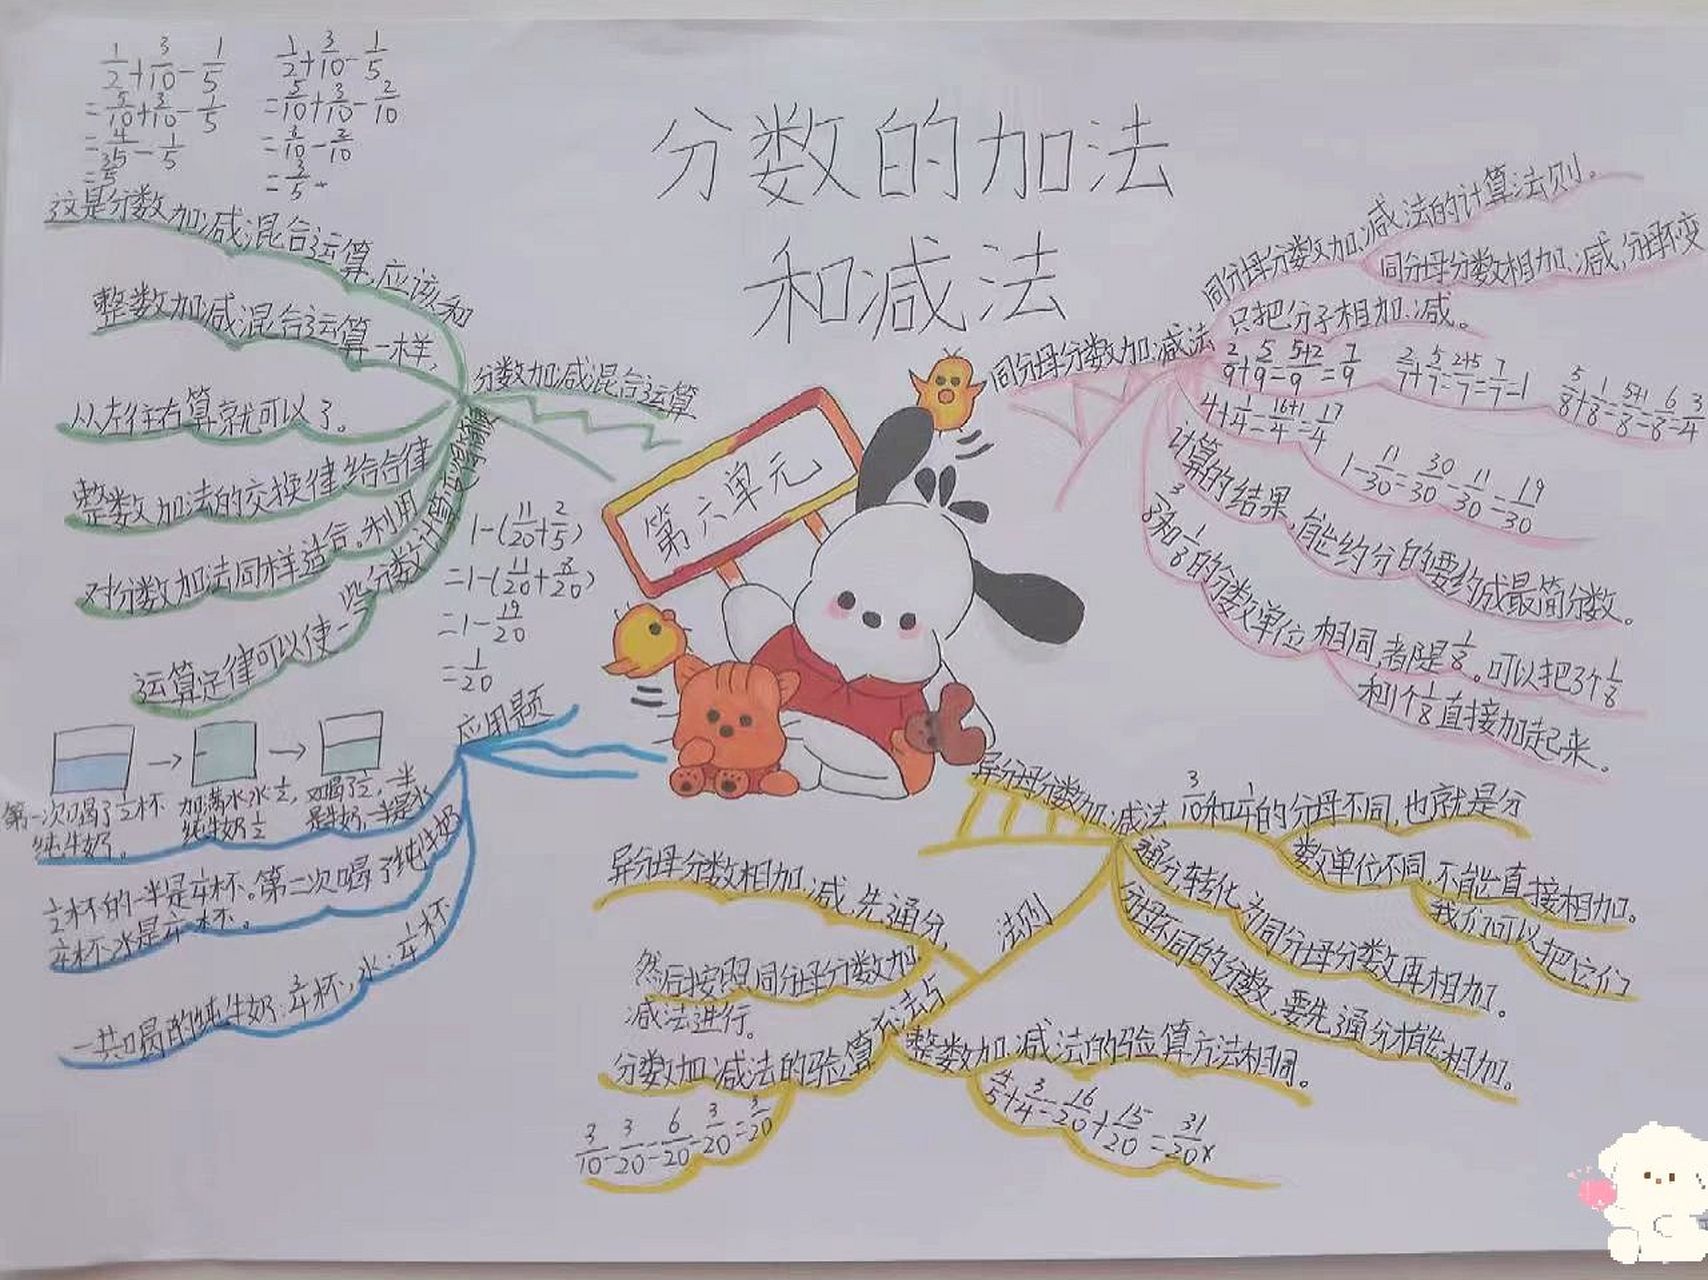 分数的加法
和减法
第六单元
1/2+3/10-1/5
=5/10+3/10-1/5
=4/5-1/5
=3/5
1/2+3/10-1/5
=5/10+3/10-2/10
=8/10-2/10
=3/5
这是分数加减混合运算,应该和
整数加减混合运算一样,
从左往右算就可以了。
分数加减混合运算
整数加法的交换律结合律
对分数加法同样适合。利用
运算定律可以使一些分数计算
1-(11/20+2/5)
=1-(11/20+8/20)
=1-19/20
=1/20
应用题
第一次喝了1/2杯
纯牛奶。
加满水水1/2,
纯牛奶1/2
又喝了1/2,一半
是牛奶,一半是水
1/2杯的一半是1/4杯。第二次喝了纯牛奶
1/4杯水是1/4杯。
一共喝的纯牛奶:杯,水:1/4杯
同分母分数加减法
同分母分数加减法的计算法则。
同分母分数相加减,分母不变
只把分子相加减。
2/9+5/9=5+2/9=7/9
2/7+5/7=2+5/7=7/7=1
5/8+1/8=5+1/8=6/8=3/4
4+1/4=16+1/4=17/4
1-11/30=30/30-11/30=19/30
计算的结果,能约分的要约成最简分数。
3/8和1/8的分数单位相同,都是1/8。可以把3个1/8
和1个1/8直接加起来。
异分母分数加减法
3/10和1/4的分母不同,也就是分
数单位不同,不能直接相加。
我们可以把它们
通分转化为同分母分数再相加。
分母不同的分数,要先通分才能相加。
法则
异分母分数相加减,先通分,
然后按照同分母分数加
减法进行。
分数加减法的验算方法与
整数加减法的验算方法相同。
3/10-3/20=6/20-3/20=3/20
4/5+3/4=16/20+15/20=31/20